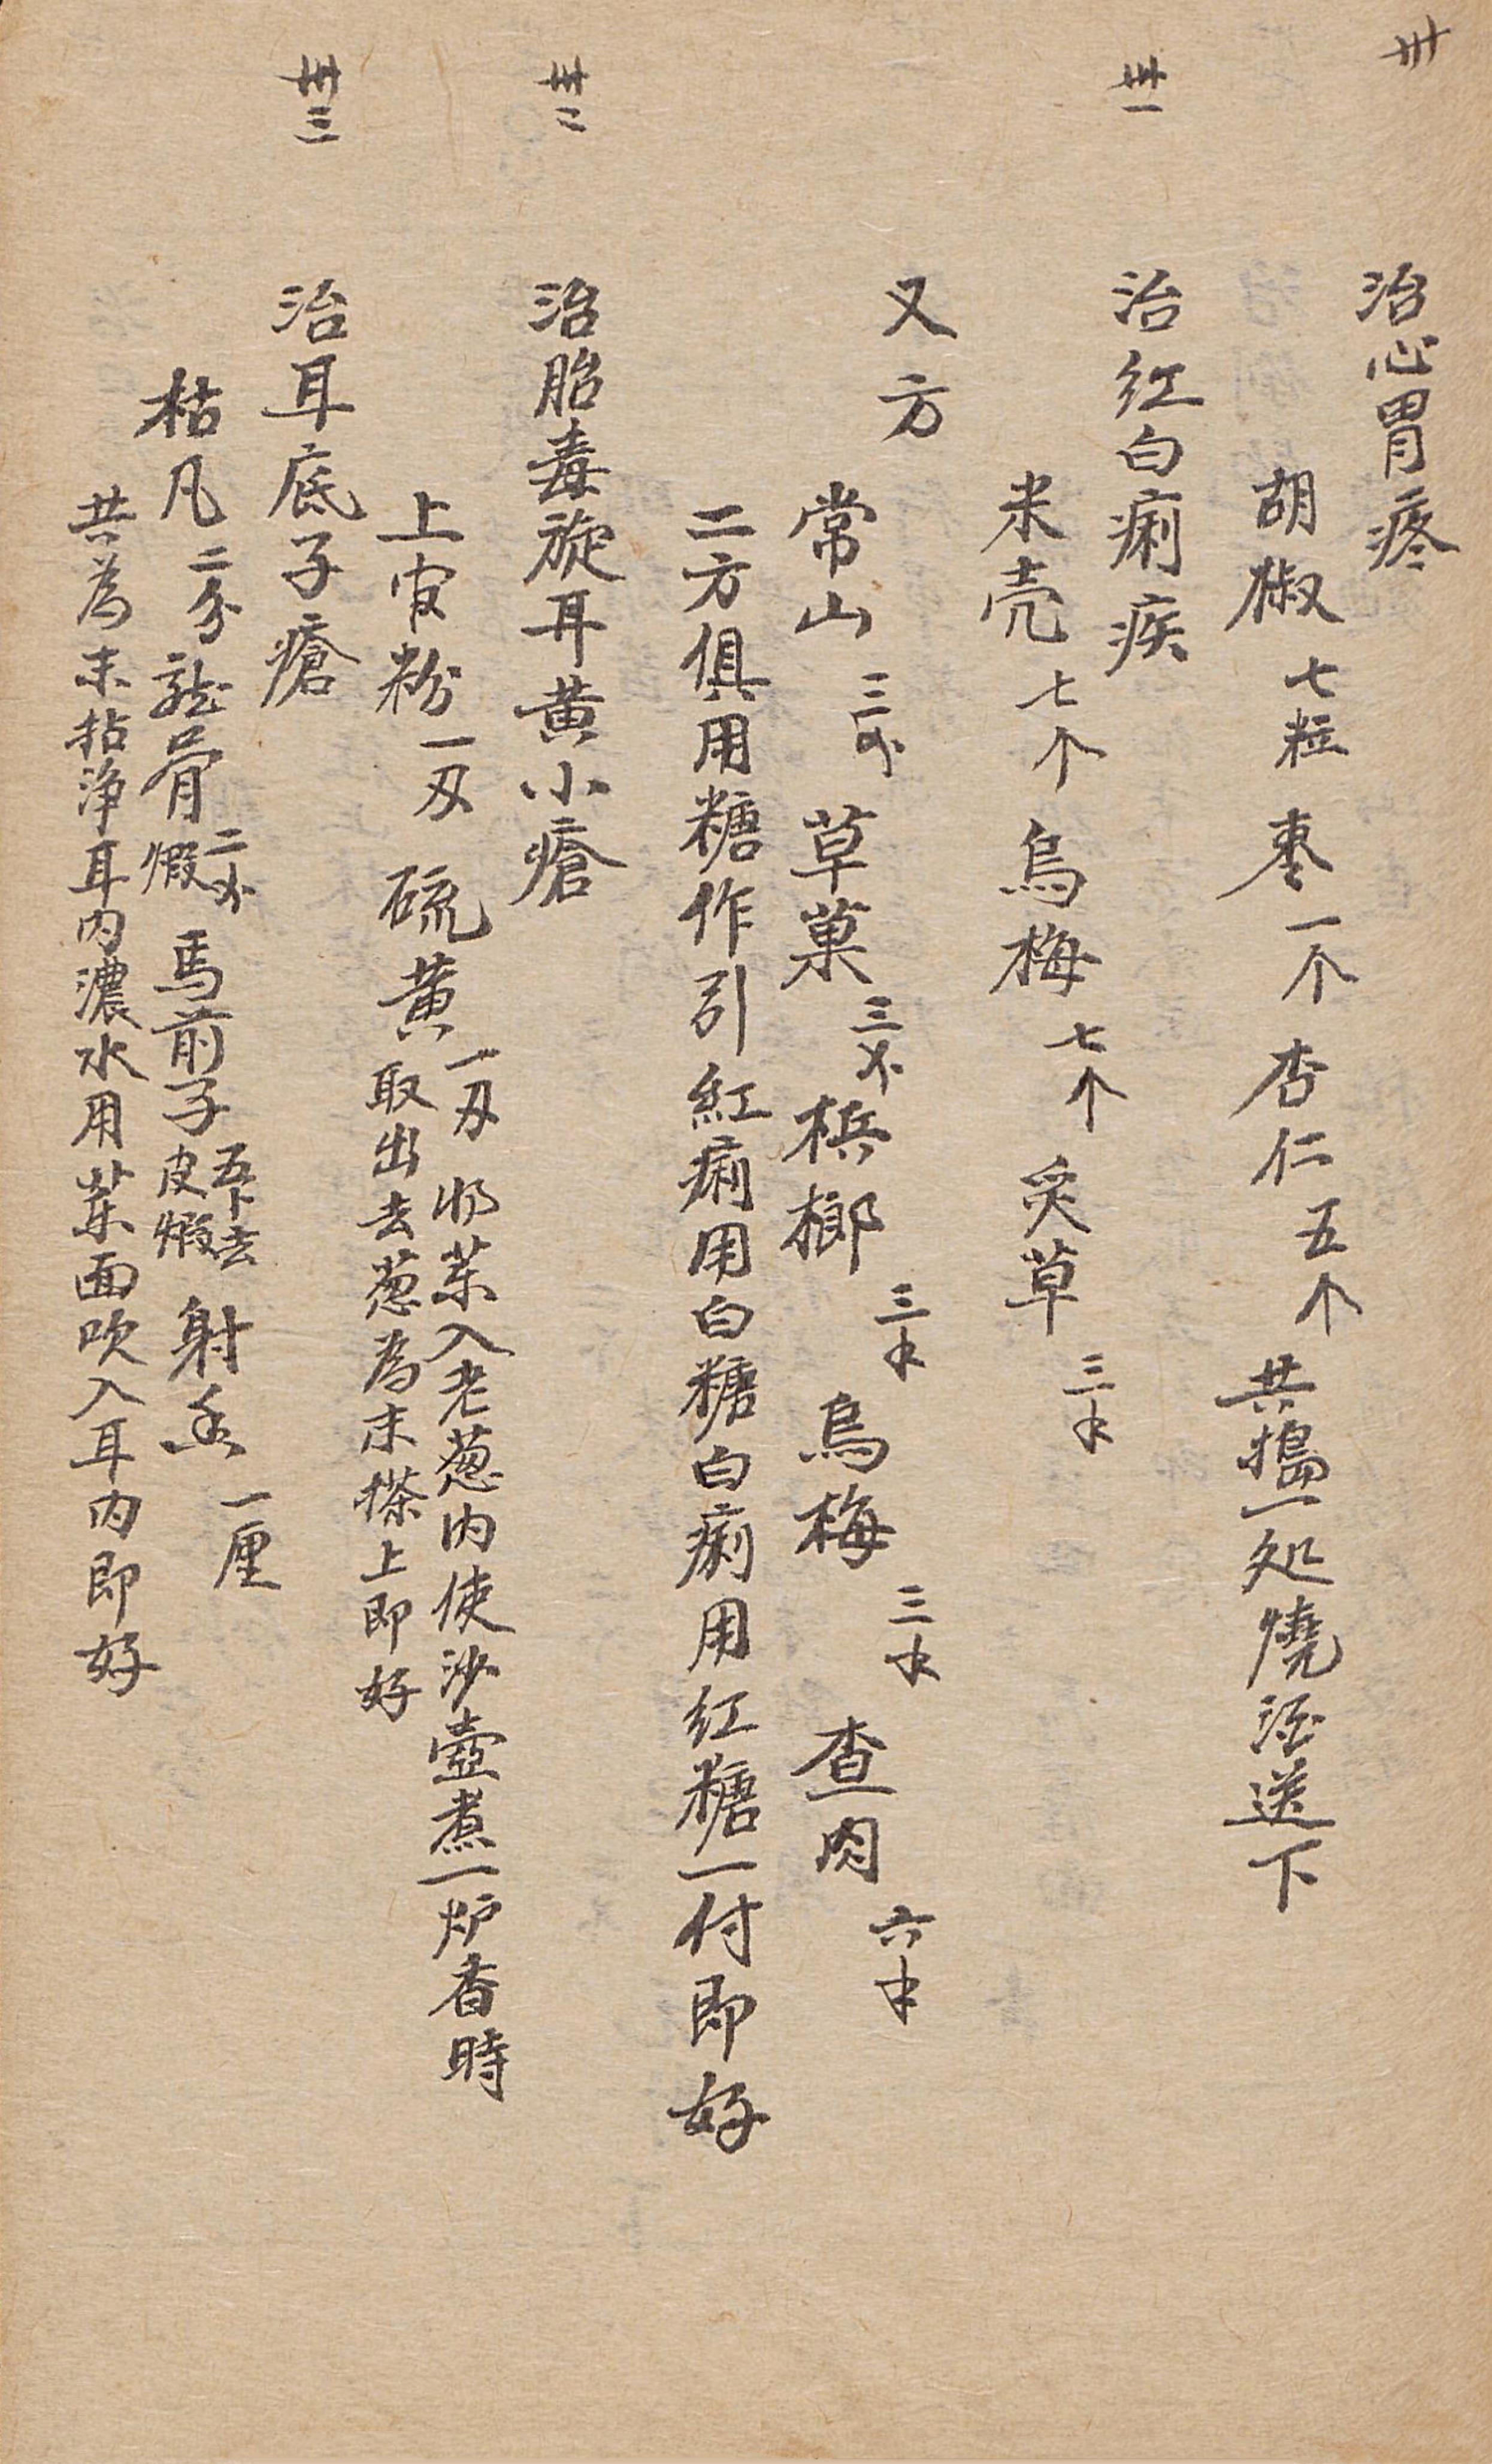 卅
治心胃疼
胡椒七粒 枣一个 杏仁五个 共搗一处燒酒送下
卅一
治红白痢疾
米壳七个 烏梅七个 炙草三钱
又方
常山三分 草菓三分 梹榔三钱 烏梅三钱 查肉六钱
二方俱用糖作引紅痢用白糖白痢用红糖一付即好
卅二
治胎毒旋耳黄小瘡
上官粉一刄 硫黄一刄 将茱入老葱内使沙壺煮一炉香時
取出去葱為末搽上即好
卅三
治耳底子瘡
枯凡二分 龍骨二分煅 馬前子五个去皮煅 射香一厘
共為末拈净耳内濃水用茱面吹入耳内即好